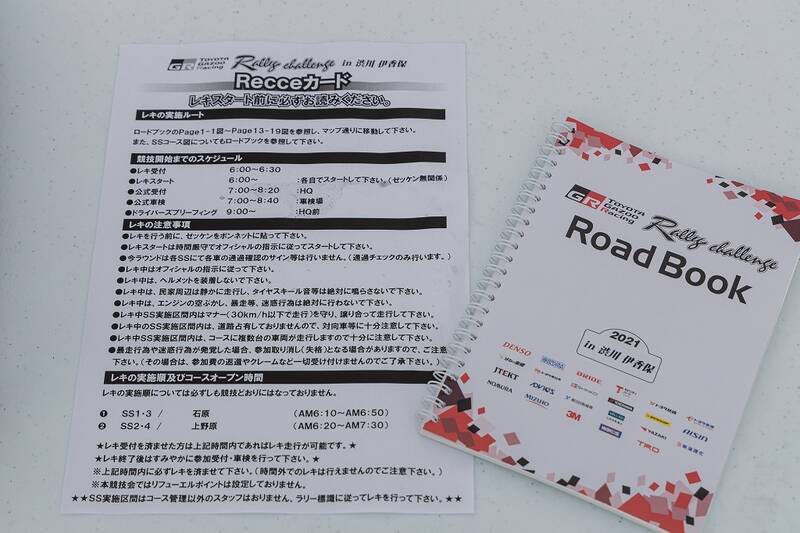 GR TOYOTA GAZOO Racing Rally challenge in 渋川 伊香保
Recceカード
レキスタート前に必ずお読みください。
レキの実施ルート
ロードブックのPage1-1図~Page13-19図を参照し、マップ通りに移動して下さい。
また、SSコース図についてもロードブックを参照して下さい。
競技開始までのスケジュール
●レキ受付 6:00~6:30
●レキスタート 6:00~ :各自でスタートして下さい。(ゼッケン無関係)
●公式受付 7:00~8:20 :HQ
●公式車検 7:00~8:40 :車検場
●ドライバーズブリーフィング 9:00~ :HQ前
レキの注意事項
●レキを行う前に、ゼッケンをボンネットに貼って下さい。
●レキスタートは時間厳守でオフィシャルの指示に従ってスタートして下さい。
●今ラウンドは各SSにて各車の通過確認のサイン等は行いません。(通過チェックのみ行います。)
●レキ中はオフィシャルの指示に従って下さい。
●レキ中は、ヘルメットを装着しないで下さい。
●レキ中は、民家周辺は静かに走行し、タイヤスキール音等は絶対に鳴らさないで下さい。
●レキ中は、エンジンの空ぶかし、暴走等、迷惑行為は絶対に行わないで下さい。
●レキ中SS実施区間内はマナー(30km/h以下で走行)を守り、譲り合って走行して下さい。
●レキ中のSS実施区間内は、道路占有しておりませんので、対向車等に十分注意して下さい。
●レキ中SS実施区間内は、コースに複数台の車両が走行しますので十分に注意して下さい。
●暴走行為や迷惑行為が発覚した場合、参加取り消し(失格)となる場合がありますので、ご注意
下さい。(その場合は、参加費の返還やクレームなど一切受け付けませんのでご了承下さい。)
レキの実施順及びコースオープン時間
レキの実施順については必ずしも競技どおりにはなっておりません。
❶ SS1・3 / 石原 (AM6:10~AM6:50)
❷ SS2・4 / 上野原 (AM6:20~AM7:30)
★レキ受付を済ませた方は上記時間内であればレキ走行が可能です。★
★レキ終了後はすみやかに参加受付・車検を行って下さい。★
※上記時間内に必ずレキを済ませて下さい。(時間外でのレキは行えませんのでご注意下さい。)
※本競技会ではリフューエルポイントは設定しておりません。
★★SS実施区間はコース管理以外のスタッフはおりません、ラリー標識に従ってレキを行って下さい。★★
GR TOYOTA GAZOO Racing Rally challenge
Road Book
2021
in 渋川 伊香保
DENSO
BRIDE
JTEKT
ADVICS
AISIN
NOBURA
MIZUNO
3M
YAZAKI
TRD